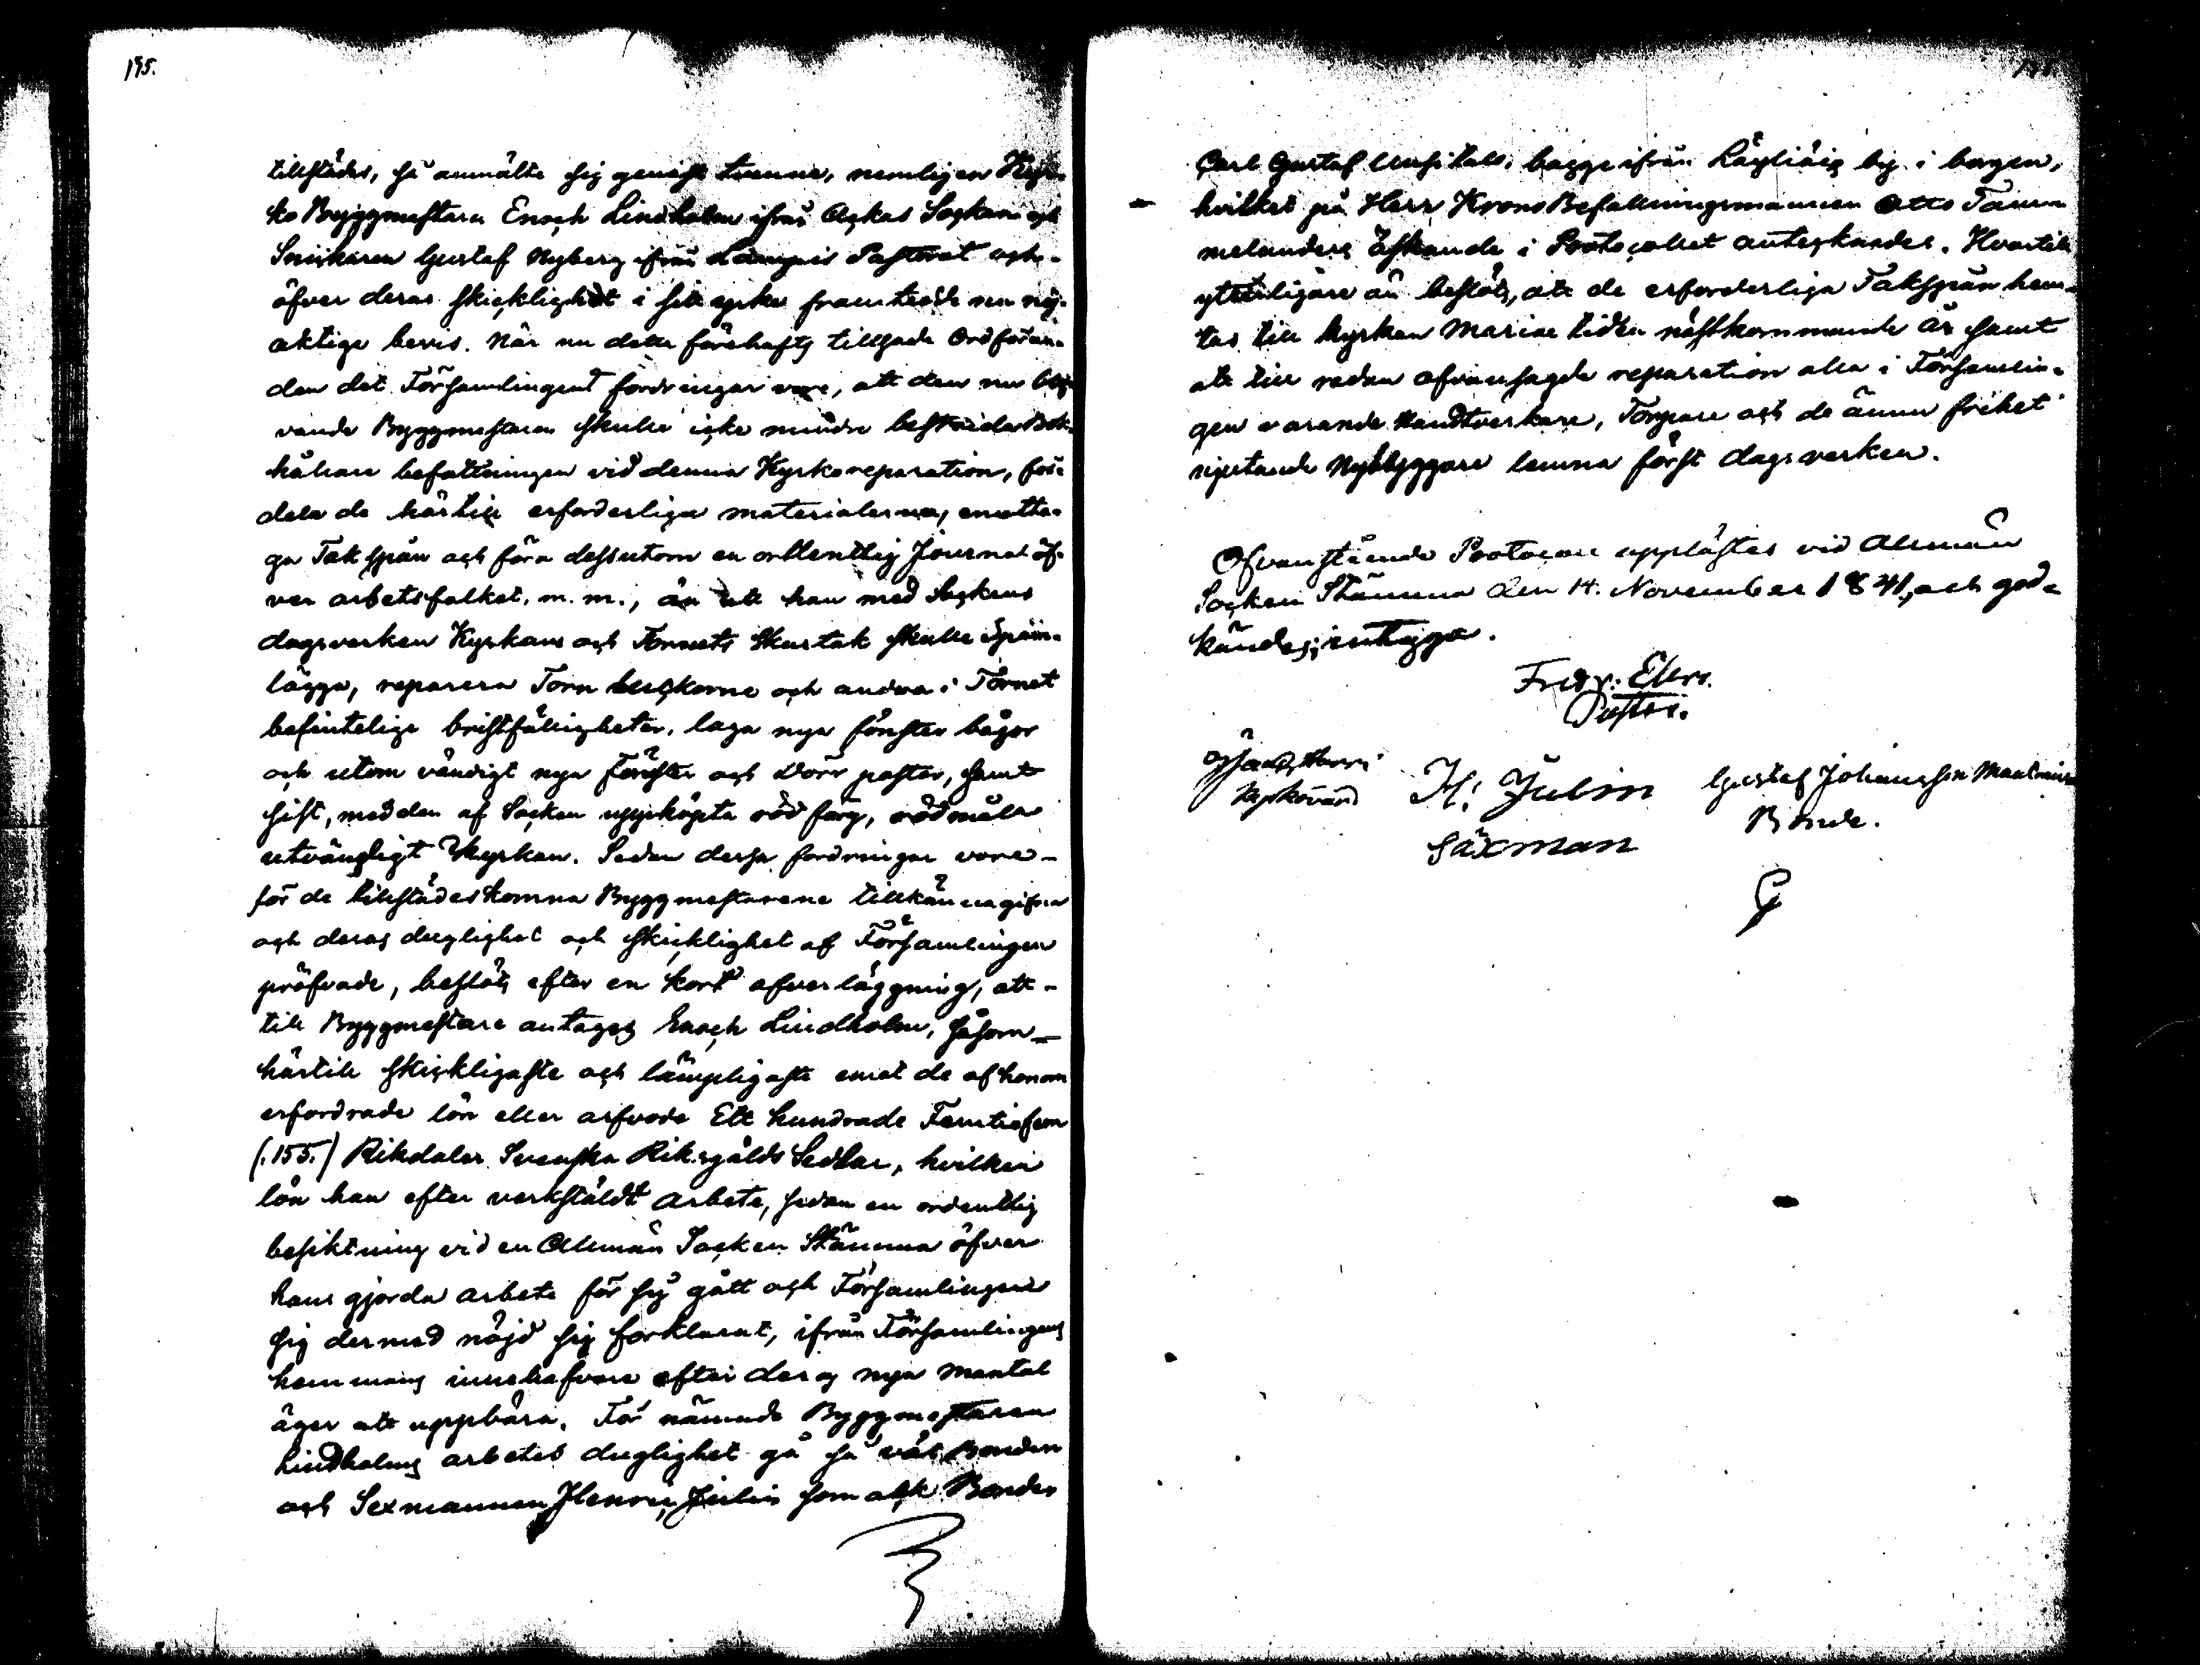 195.
tillstädes, så anmälte sig genast tvenne, nemligen Kyr-
ko Byggmestaren Enoch Lindholm ifrån Ackas Socken och
Snickaren Gustaf Nyberg ifrån Lampis Pastorat och
öfver deras skicklighet i sitt yrke framtedde nu nöj-
aktige bevis. När nu detta förehafts tillsade Ordföran-
den det Församlingens fordringar vore, att den nu
vande Byggmestaren skulle icke mindre bestrida Bok-
hållare befattningen vid denna Kyrkoreparation, för-
dela de härtill erforderliga materialerna, emotta-
ga Takspån och föra dessutom en ordentlig Journal öf-
ver arbetsfolket, m. m., än att han med Sockens
dagsverken Kyrkans och Tornets Skurtak skulle Spån-
lägga, reparera Torn luckorne och andra i Tornet
befintelige bristfälligheter, laga nya fönster bågor
och utom vändigt nya Fönster och Dörr poster, samt
sist, med den af Socken uppköpta röd färg, rödmåla
utvändigt Kyrkan. Sedan dessa fordringar vore
för de tillstädeskomna Byggmestarene tillkännagifna
och deras duglighet och skicklighet af Församlingen
pröfvade, beslöts efter en kort öfverläggning, att
till Byggmestare antages Enoch Lindholm, såsom
härtill skickligaste och lämpligaste emot de af honom
erfordrade lön eller arfvode Ett hundrade Femtiofem
(:155.) Rikdaler Svenska Riksgälds Sedlar, hvilken
lön han efter verkställdt arbete, sedan en ordentlig
besiktning vid en Allmän Socken Stämma öfver
hans gjorda arbete för sig gått och Församlingen
sig dermed nöjd sig förklarat, ifrån Församlingens
hemmans innehafvare efter deras nya mantal
äger att uppbära. För nämnde Byggmestaren
Lindholms arbetes duglighet gå så väl Bonden
och Sexmannen Henric Julin som ock Bonden
Carl Gustaf bägge ifrån by i borgen,
hvilket på Herr KronoBefallningsmannen Otto Tamm
melanders äskande i Protocollet antecknades. Hvartill
ytterligare än beslöts, att de erforderliga Takspån hem-
tas till Kyrkan Mariae tiden nästkommande år samt
att till redan ofvansagde reparation alla i Församlin-
gen varande Handtverkare, Torpare och de ännu frihet
njutande Nybyggare lemna först dagsverken.
Ofvanstående Protocoll upplästes vid Allmän
Socken Stämma den 14. November 1841, och god-
kändes; intyga.
Fredr: Elers.
Pastor.
Kyrkovärd
H: Julin
Gustaf Johansson
Säxman
Bonde.